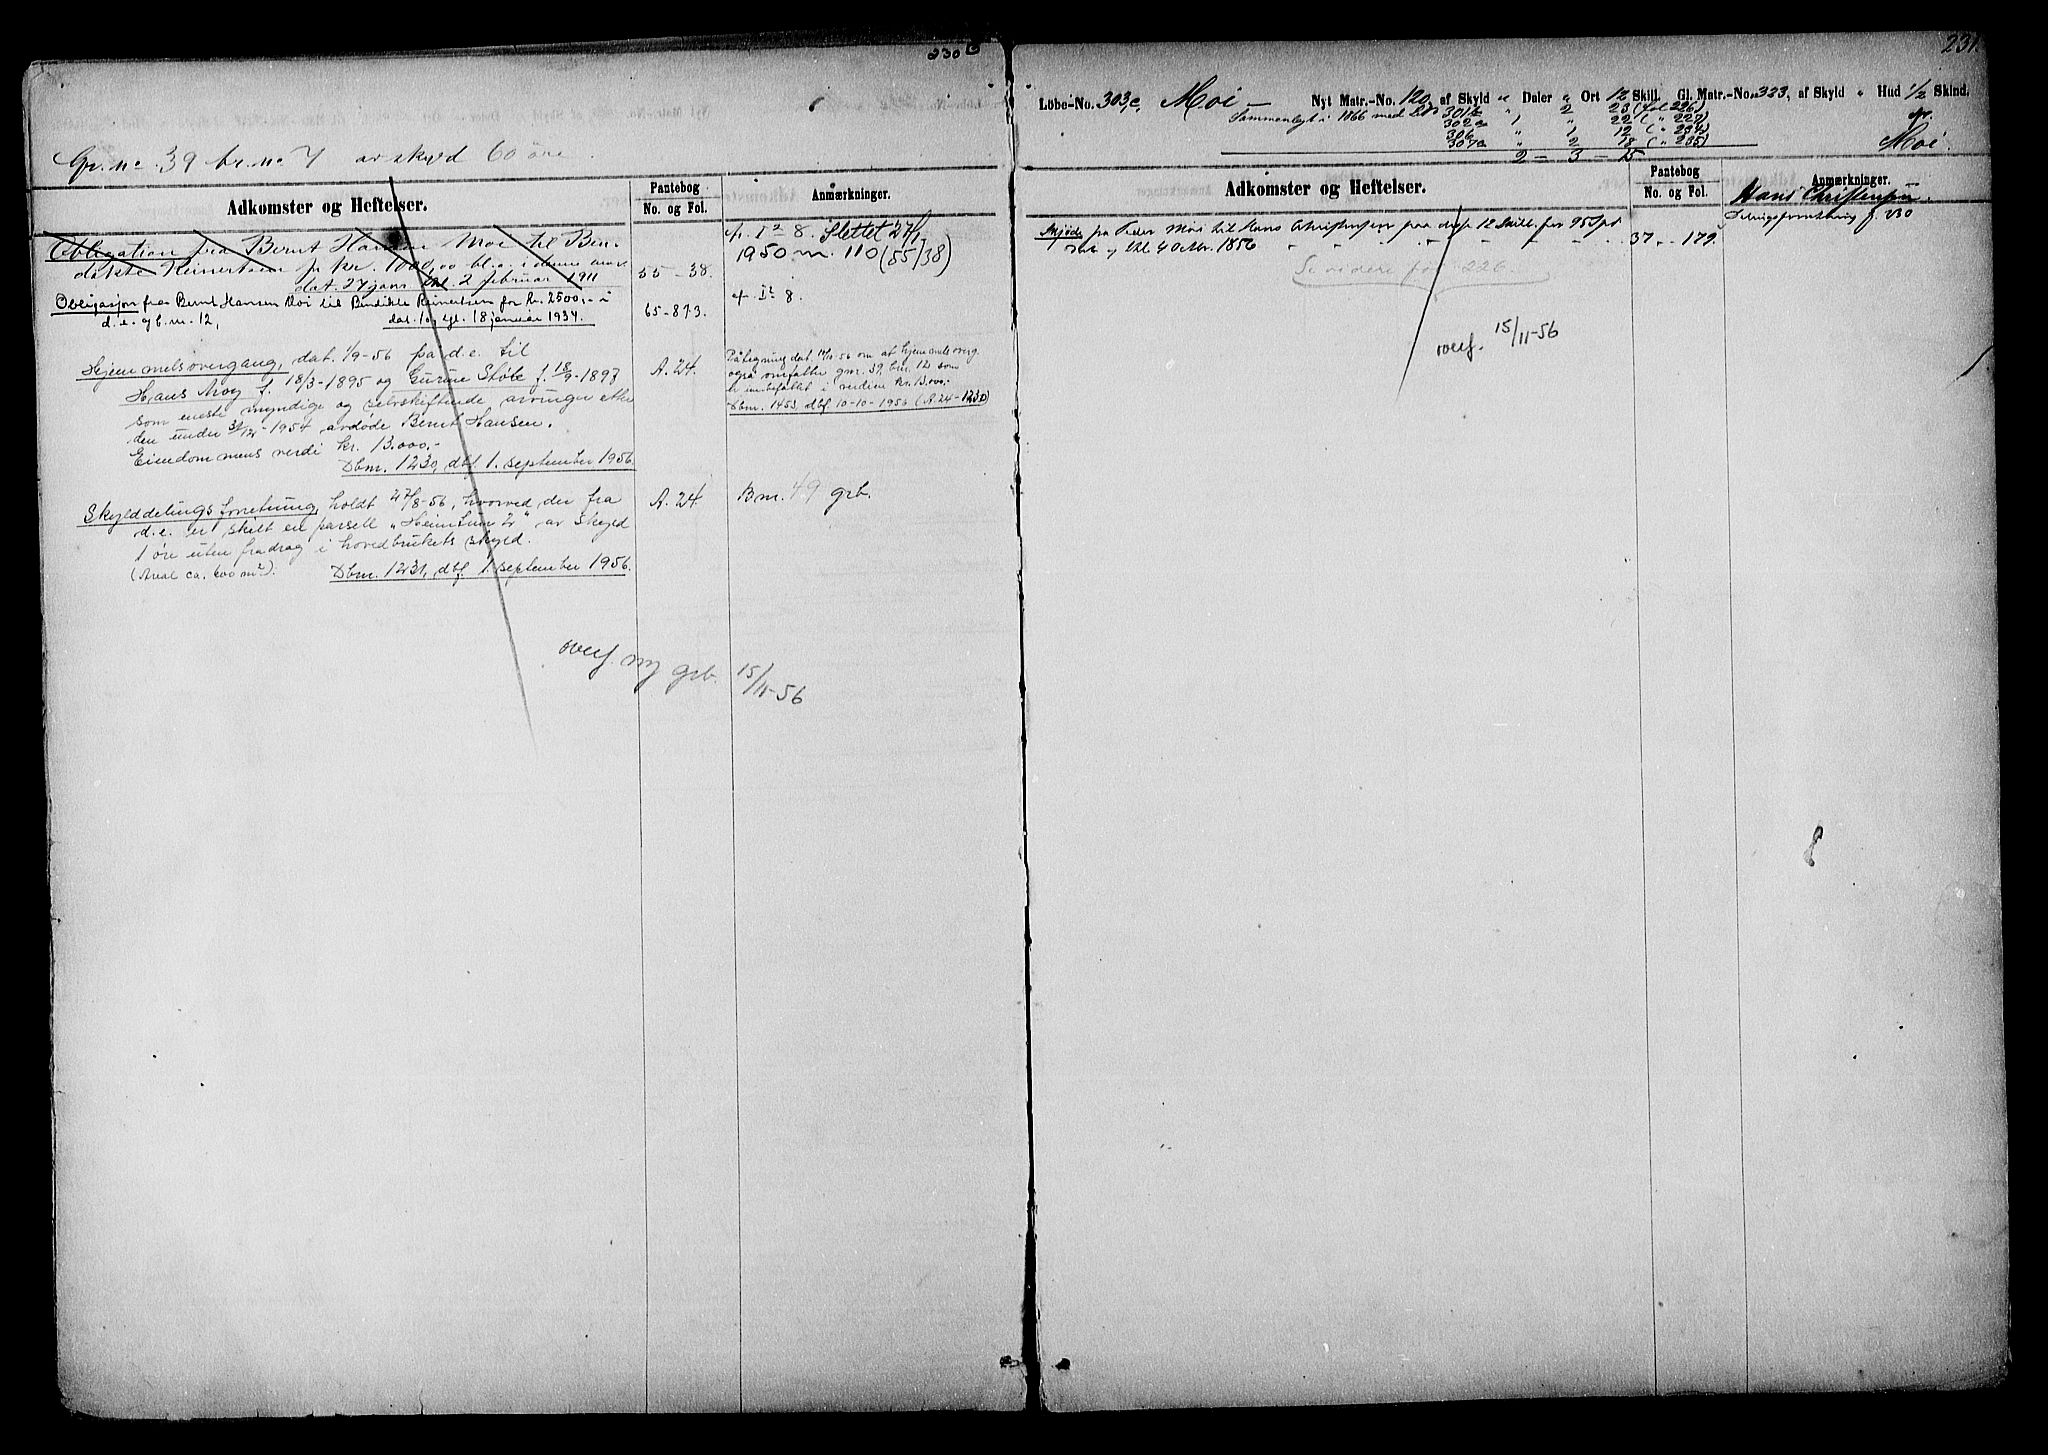 230 b
Gr. no 39 br. no 7 av skyld 60 øre
Adkomster og Heftelser.
Pantebog
No. og Fol.
Anmærkninger.
Obligation fra Bernt Hansen Moi til Ben-
dikte Reinertsen p kr. 1000,00 bl. a. i denne
dat. 27 jan. thl. 2 februar 1911
55 - 38.
Slettet 27/1
1950 m. 110 (55/38)
Obligasjon fra Bernt Hansen Moi til Bendikte Reinertsen for kr. 2500,- i
d. e. og b. nr. 12, dat. 1 og tgl. 18 januar 1934.
65 - 873.
Hjemmelsovergang, dat. 1/9-56 på d. e. til
Hans Moy f. 18/3-1895 og Gurine Støle f. 18/9-1897
som eneste myndige og selvskiftende arvinger etter
den under 31/12-1954 avdøde Bernt Hansen.
Eiendommens verdi kr. 13.000,-
Dbnr. 1230, dbf 1. september 1956.
A. 24.
Påtegning dat. 10/10-56 om at hjemmelsoverg.
også omfatter gnr. 39 bnr. 12 som
er innbefattet i verdien kr. 13.000,-
Dbnr. 1453, dbf. 10-10-1956 (A. 24 - 1230)
Skylddelingsforretning, holdt 27/8-56, hvorved der fra
d. e. er skilt en parsell „Heimtun 2" av skyld
1 øre uten fradrag i hovedbrukets skyld.
(Areal ca. 600 m²). Dbnr. 1231, dbf 1. september 1956.
A. 24.
Bnr. 49 grb.
overf. ny grb. 15/11-56
231.
Löbe-No. 303c, Moi - Nyt Matr.-No. 120, af Skyld " Daler " Ort 12 Skill. Gl. Matr.-No. 323, af Skyld " Hud 1/2 Skind.
Sammenlagt i 1866 med LNo 301b " 2 23 (fol 226)
302a 1 " 22 ( " 227)
306 " 1 12 ( " 234)
307a " 2 18 ( " 235)
2 - 3 - 15
Moi.
Adkomster og Heftelser.
Pantebog
No. og Fol.
Anmærkninger.
Hans Christensen.
f. 230
Skjøde fra Peder Moi til Hans Christensen paa disse 12 Skill. for 95 Spd
dat. og thl. 4 Oktbr. 1856
37 - 179.
Se videre fol 226.
overf. 15/11-56